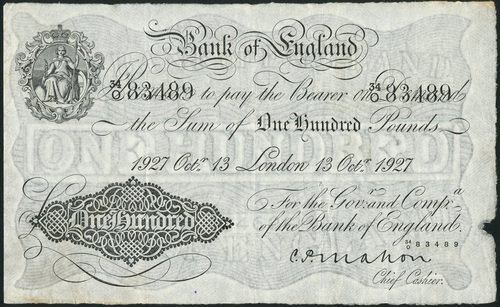 Bank of England
34/O 83489 34/O 83489
Promise to pay the Bearer on Demand
the Sum of One Hundred Pounds.
1927 Octr. 13 London 13 Octr. 1927
For the Govr. and Compa.
of the Bank of England.
34/O 83489
One Hundred
C.P. Mahon
Chief Cashier.